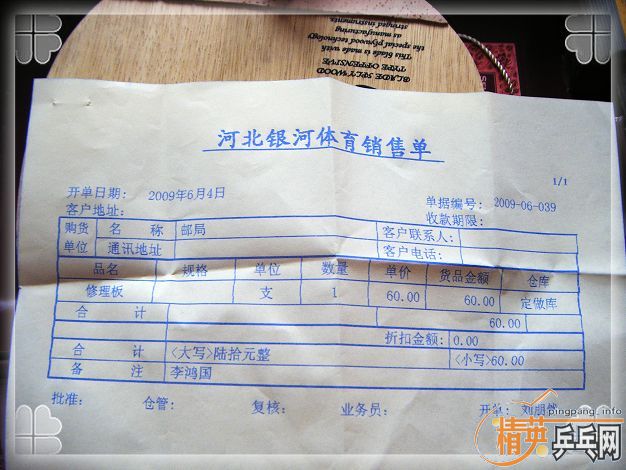 This blade is made with
the special plywood technology
as manufacturing
stringed instruments
BLADE 5PLYWOOD
TYPE OFFENSIVE
河北银河体育销售单
1/1
开单日期: 2009年6月4日 单据编号: 2009-06-039
客户地址: 收款期限:
购货 名 称 邮局 客户联系人:
单位 通讯地址 客户电话:
品名 规格 单位 数量 单价 货品金额 仓库
修理板 支 1 60.00 60.00 定做库
合 计 60.00
折扣金额: 0.00
合 计 <大写>陆拾元整 <小写>60.00
备 注 李鸿国
批准: 仓管: 复核: 业务员: 开单: 刘朋
pingpang.info
精英乒乓网